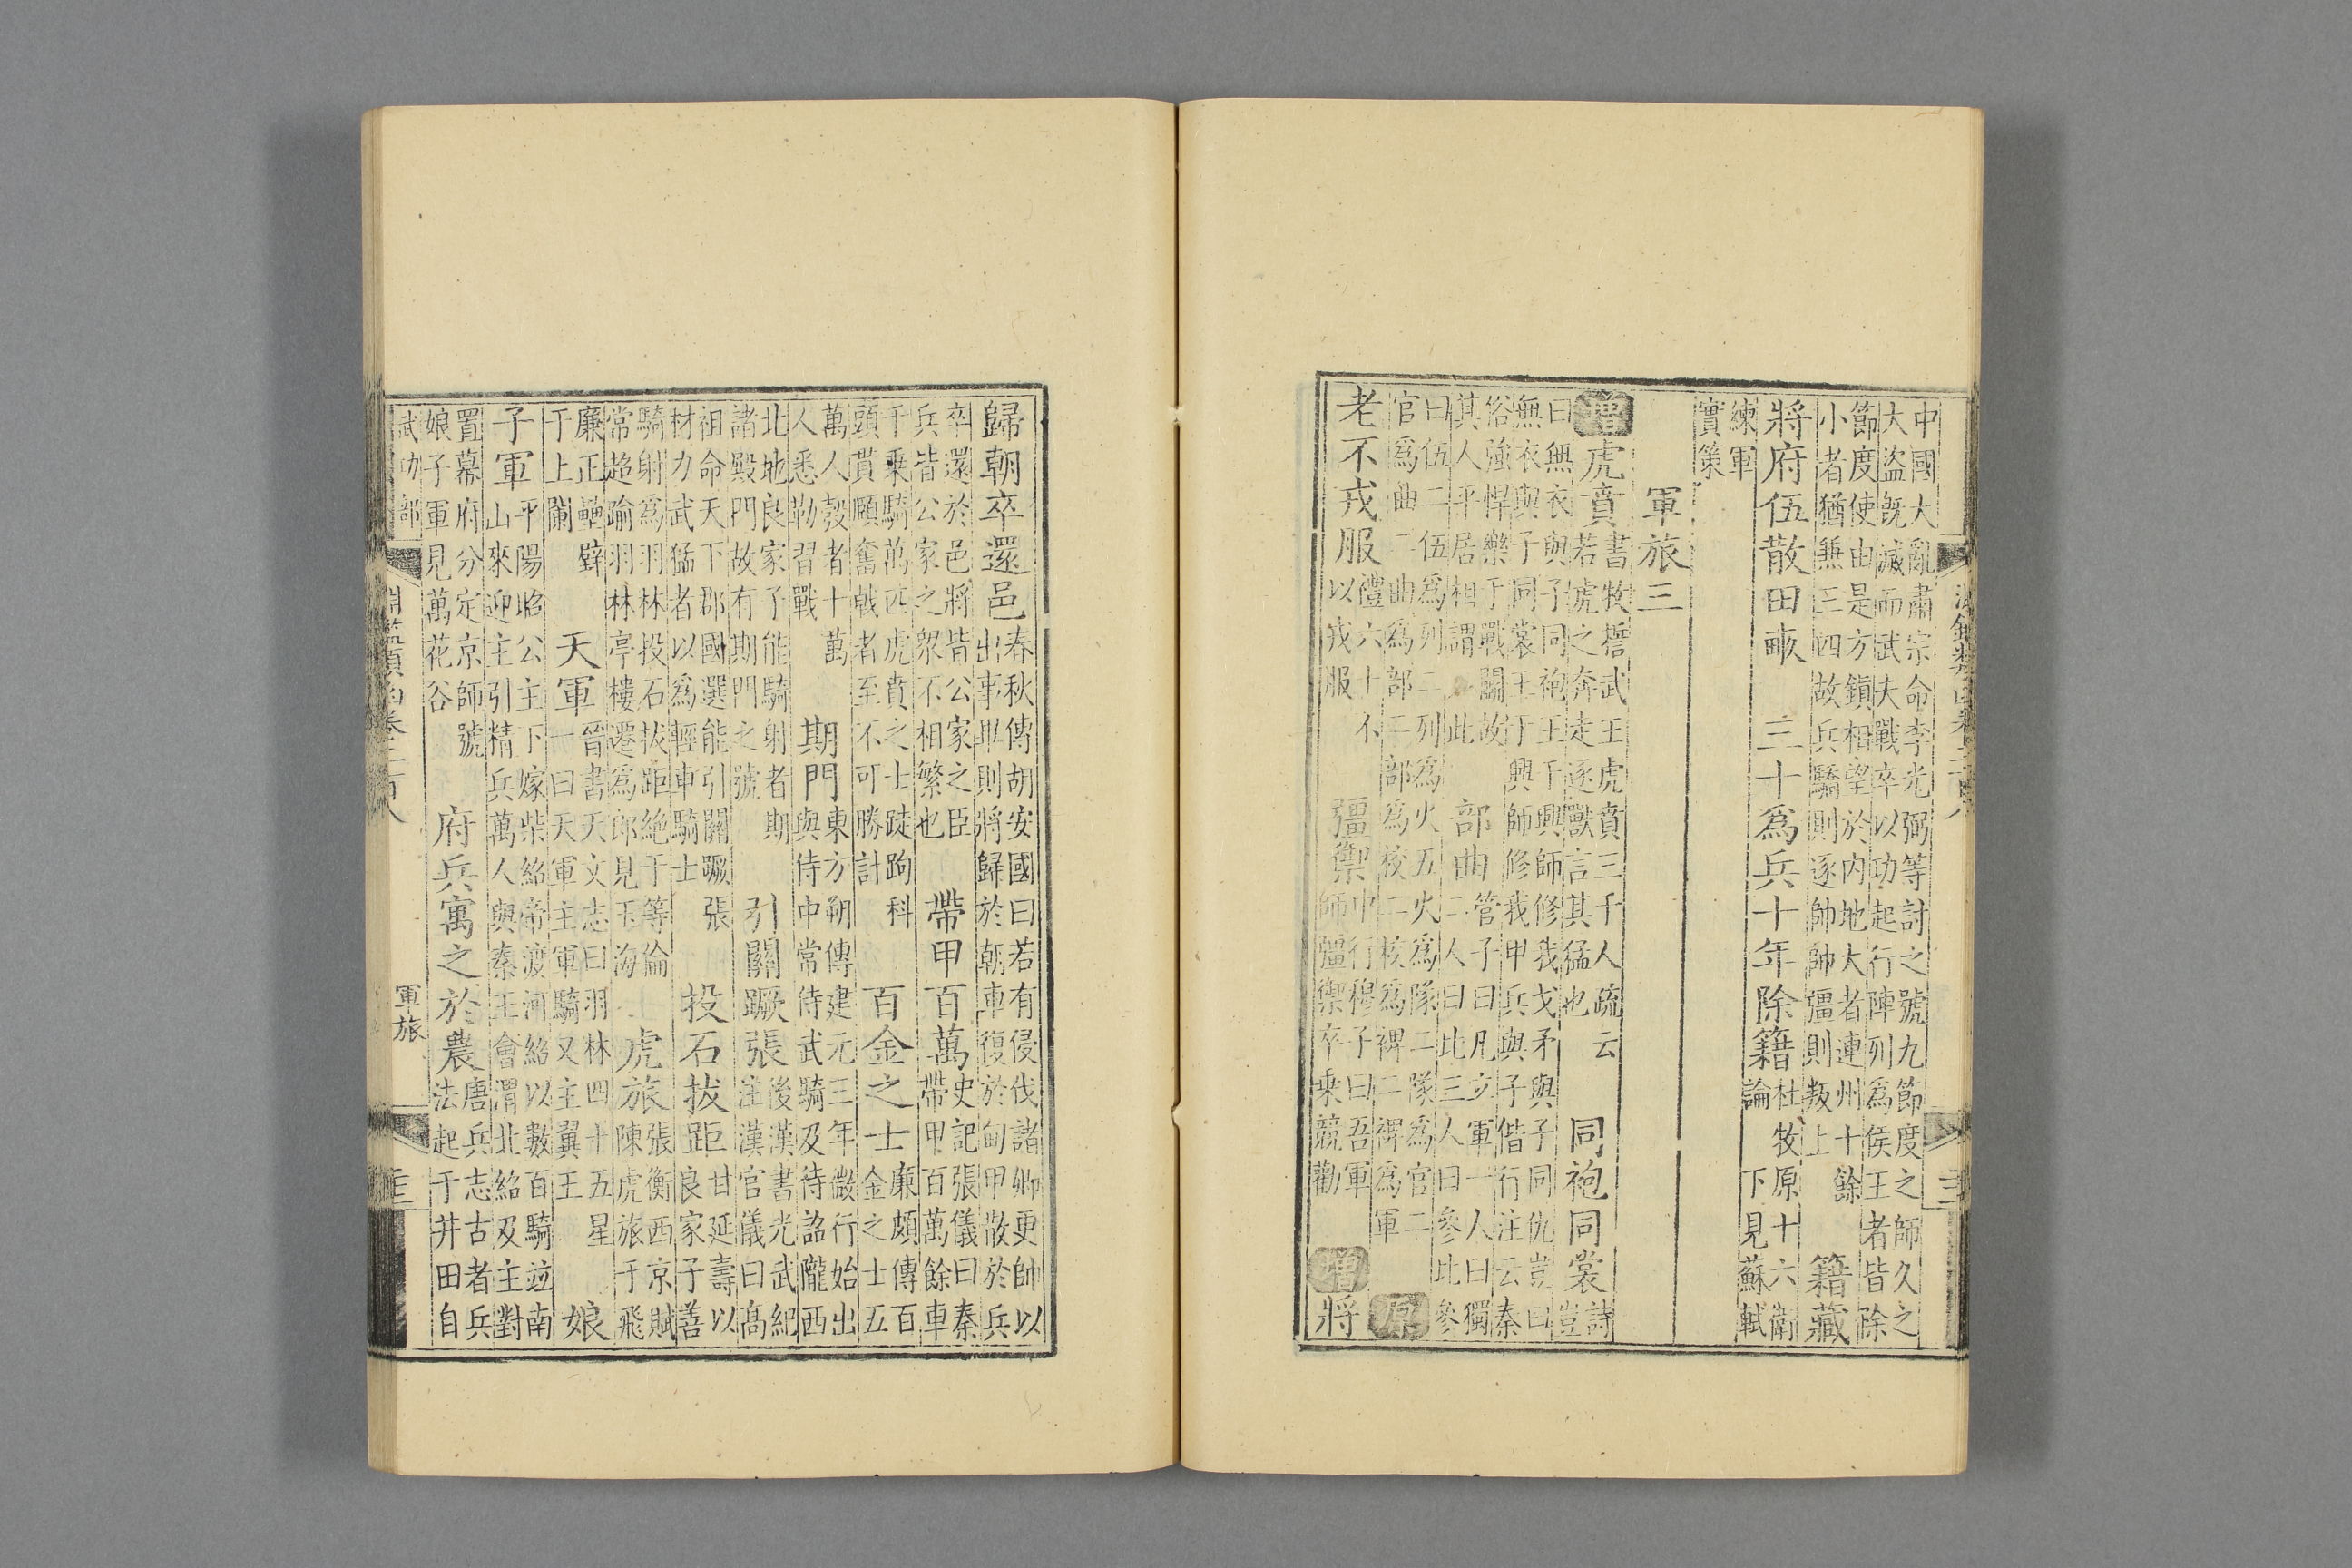 中國大亂肅宗命李光弼等討之號九節度之師久之
大盜既滅而武夫戰卒以功起行陣列爲侯王者皆除
節度使由是方鎮相望於內地大者連州十餘
小者猶兼三四故兵驕則逐帥帥彊則叛上
籍藏
將府伍散田畝
三十爲兵十年除籍
杜牧原十六衛
論 下見蘇軾
練軍
實策
軍旅三
增虎賁
書牧誓武王虎賁三千人疏云
若虎之奔走逐獸言其猛也
同袍同裳
詩豈
曰無衣與子同袍王于興師修我戈矛與子同仇豈曰
無衣與子同裳王于興師修我甲兵與子偕行注云秦
俗強悍樂于戰鬬故
其人平居相謂 此
部曲
管子曰凡立軍一人曰獨
二人曰比三人曰參比參
曰伍二伍爲列二列爲火五火爲隊二隊爲官二
官爲曲二曲爲部二部爲校二校爲裨二裨爲軍
原
老不戎服
禮六十不
以戎服
彊禦
中行穆子曰吾軍
師彊禦卒乘競勸
增
將
歸朝卒還邑
春秋傳胡安國曰若有侵伐諸卿更帥以
出事畢則將歸於朝車復於甸甲散於兵
卒還於邑將皆公家之臣
兵皆公家之衆不相繁也
帶甲百萬
史記張儀曰秦
帶甲百萬餘車
千乘騎萬匹虎賁之士跿跔科
頭貫頤奮戟者至不可勝計
百金之士
廉頗傳百
金之士五
萬人彀者十萬
人悉勒習戰
期門
東方朔傳建元三年微行始出
與侍中常侍武騎及待詔隴西
北地良家子能騎射者期
諸殿門故有期門之號
引關蹶張
後漢書光武紀
注漢官儀曰高
祖命天下郡國選能引關蹶張
材力武猛者以爲輕車騎士
投石拔距
甘延壽以
良家子善
騎射爲羽林投石拔距絶于等倫
常超踰羽林亭樓遷爲郎見玉海
虎旅
張衡西京賦
陳虎旅于飛
廉正壘壁
于上蘭
天軍
晉書天文志曰羽林四十五星
一曰天軍主軍騎又主翼王
娘
子軍
平陽昭公主下嫁柴紹帝渡河紹以數百騎竝南
山來迎主引精兵萬人與秦王會渭北紹及主對
置幕府分定京師號
娘子軍見萬花谷
府兵寓之於農
唐兵志古者兵
法起于井田自
武功部
淵鑑類函卷二百八
軍旅